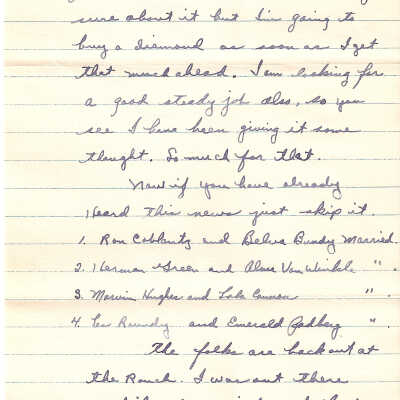 sure about it but I'm going to
buy a diamond as soon as I get
that much ahead. I am looking for
a good steady job also, so you
see I have been giving it some
thought. So much for that.
Now if you have already
Heard this news just skip it.
1. Ron and Belva Bundy Married.
2. Herman Green and Van Winkle "
3. Marvin Hughes and "
4. Bundy and Emerald "
The folks are back out at
the Ranch. I was out there